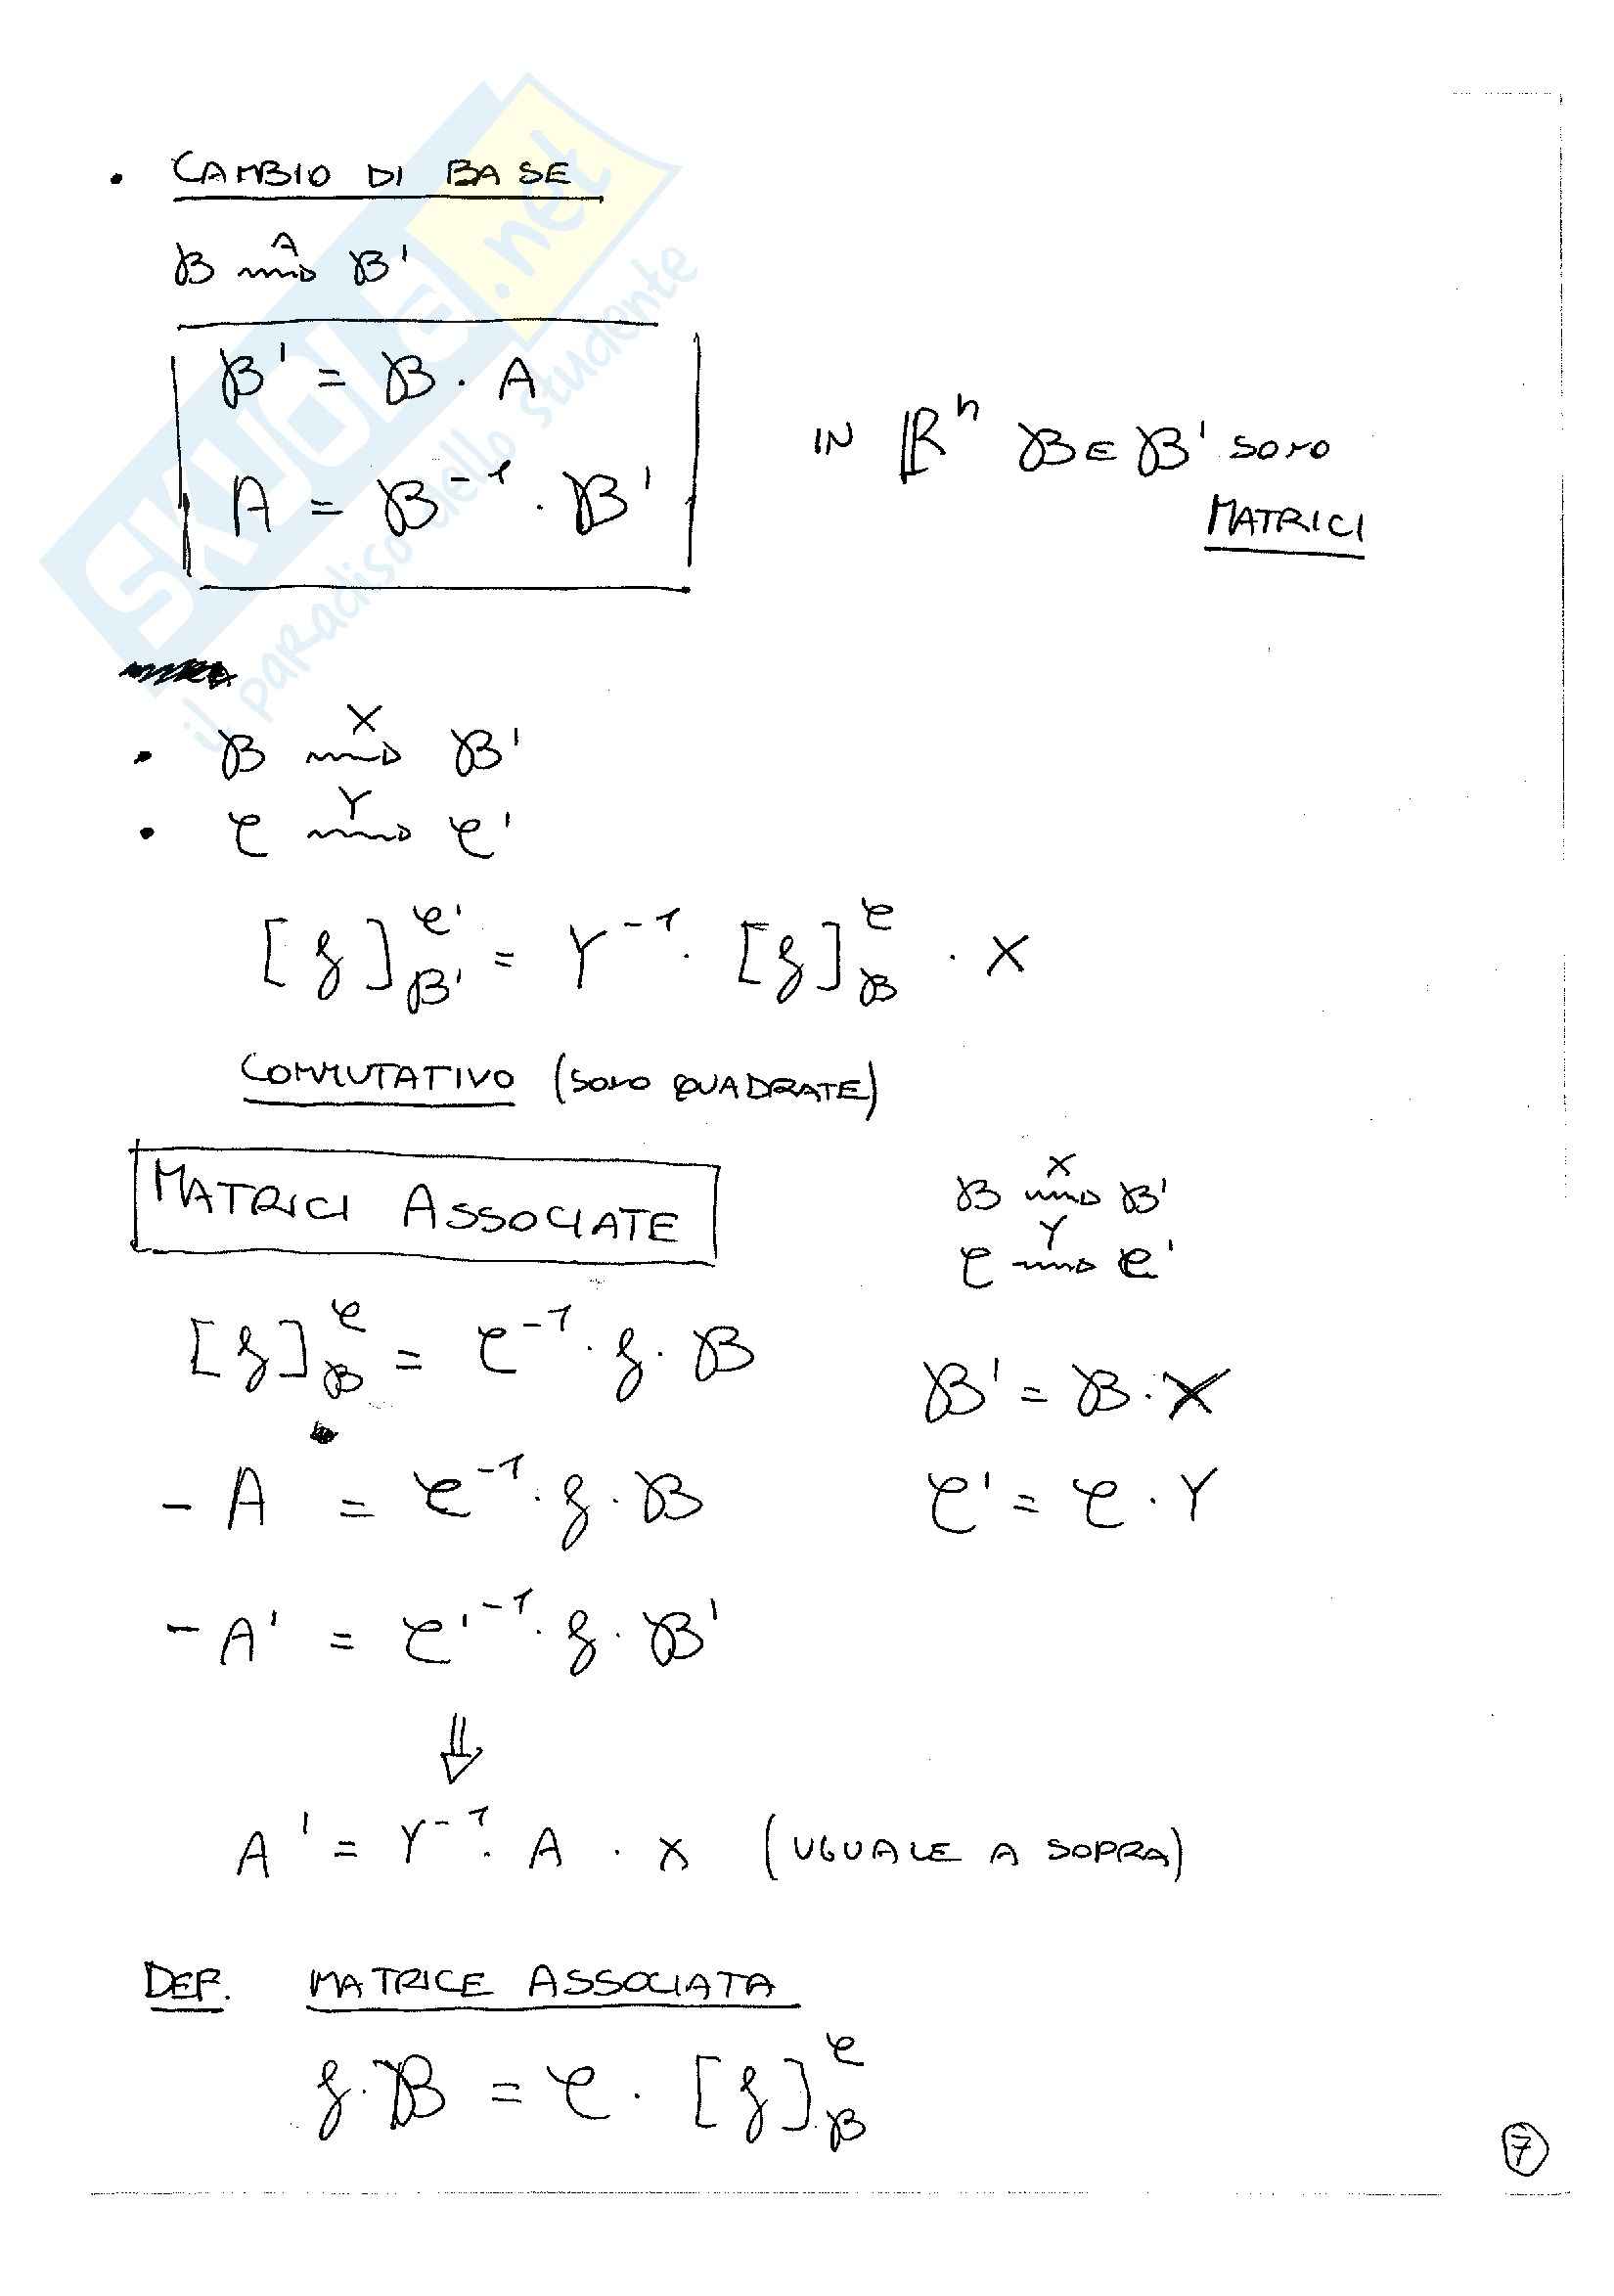 SKUOLA.net
il paradiso dello studente
• CAMBIO DI BASE
B ⇝ᴬ B'
B' = B · A
A = B⁻¹ · B'
IN ℝⁿ B E B' SONO
MATRICI
• B ⇝ˣ B'
• C ⇝ʸ C'
[f]_B'^C' = Y⁻¹ · [f]_B^C · X
COMMUTATIVO (SONO QUADRATE)
MATRICI ASSOCIATE
B ⇝ˣ B'
C ⇝ʸ C'
[f]_B^C = C⁻¹ · f · B
B' = B · X
- A = C⁻¹ · f · B
C' = C · Y
- A' = C'⁻¹ · f · B'
⇓
A' = Y⁻¹ · A · X (UGUALE A SOPRA)
DEF. MATRICE ASSOCIATA
f · B = C · [f]_B^C
7